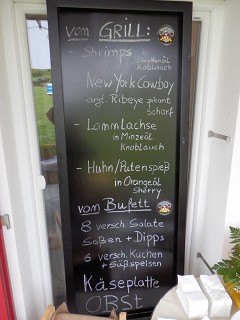 vom GRILL:
- Shrimps
Knoblauch
New York Cowboy
argt. Ribeye pikant
scharf
- Lammlachse
in Minzeöl
Knoblauch
- Huhn/Putenspieß
in Orangeöl
Sherry
vom Bufett
8 versch. Salate
Soßen + Dipps
6 versch. Kuchen
+ Süßspeisen
Käseplatte
OBSt